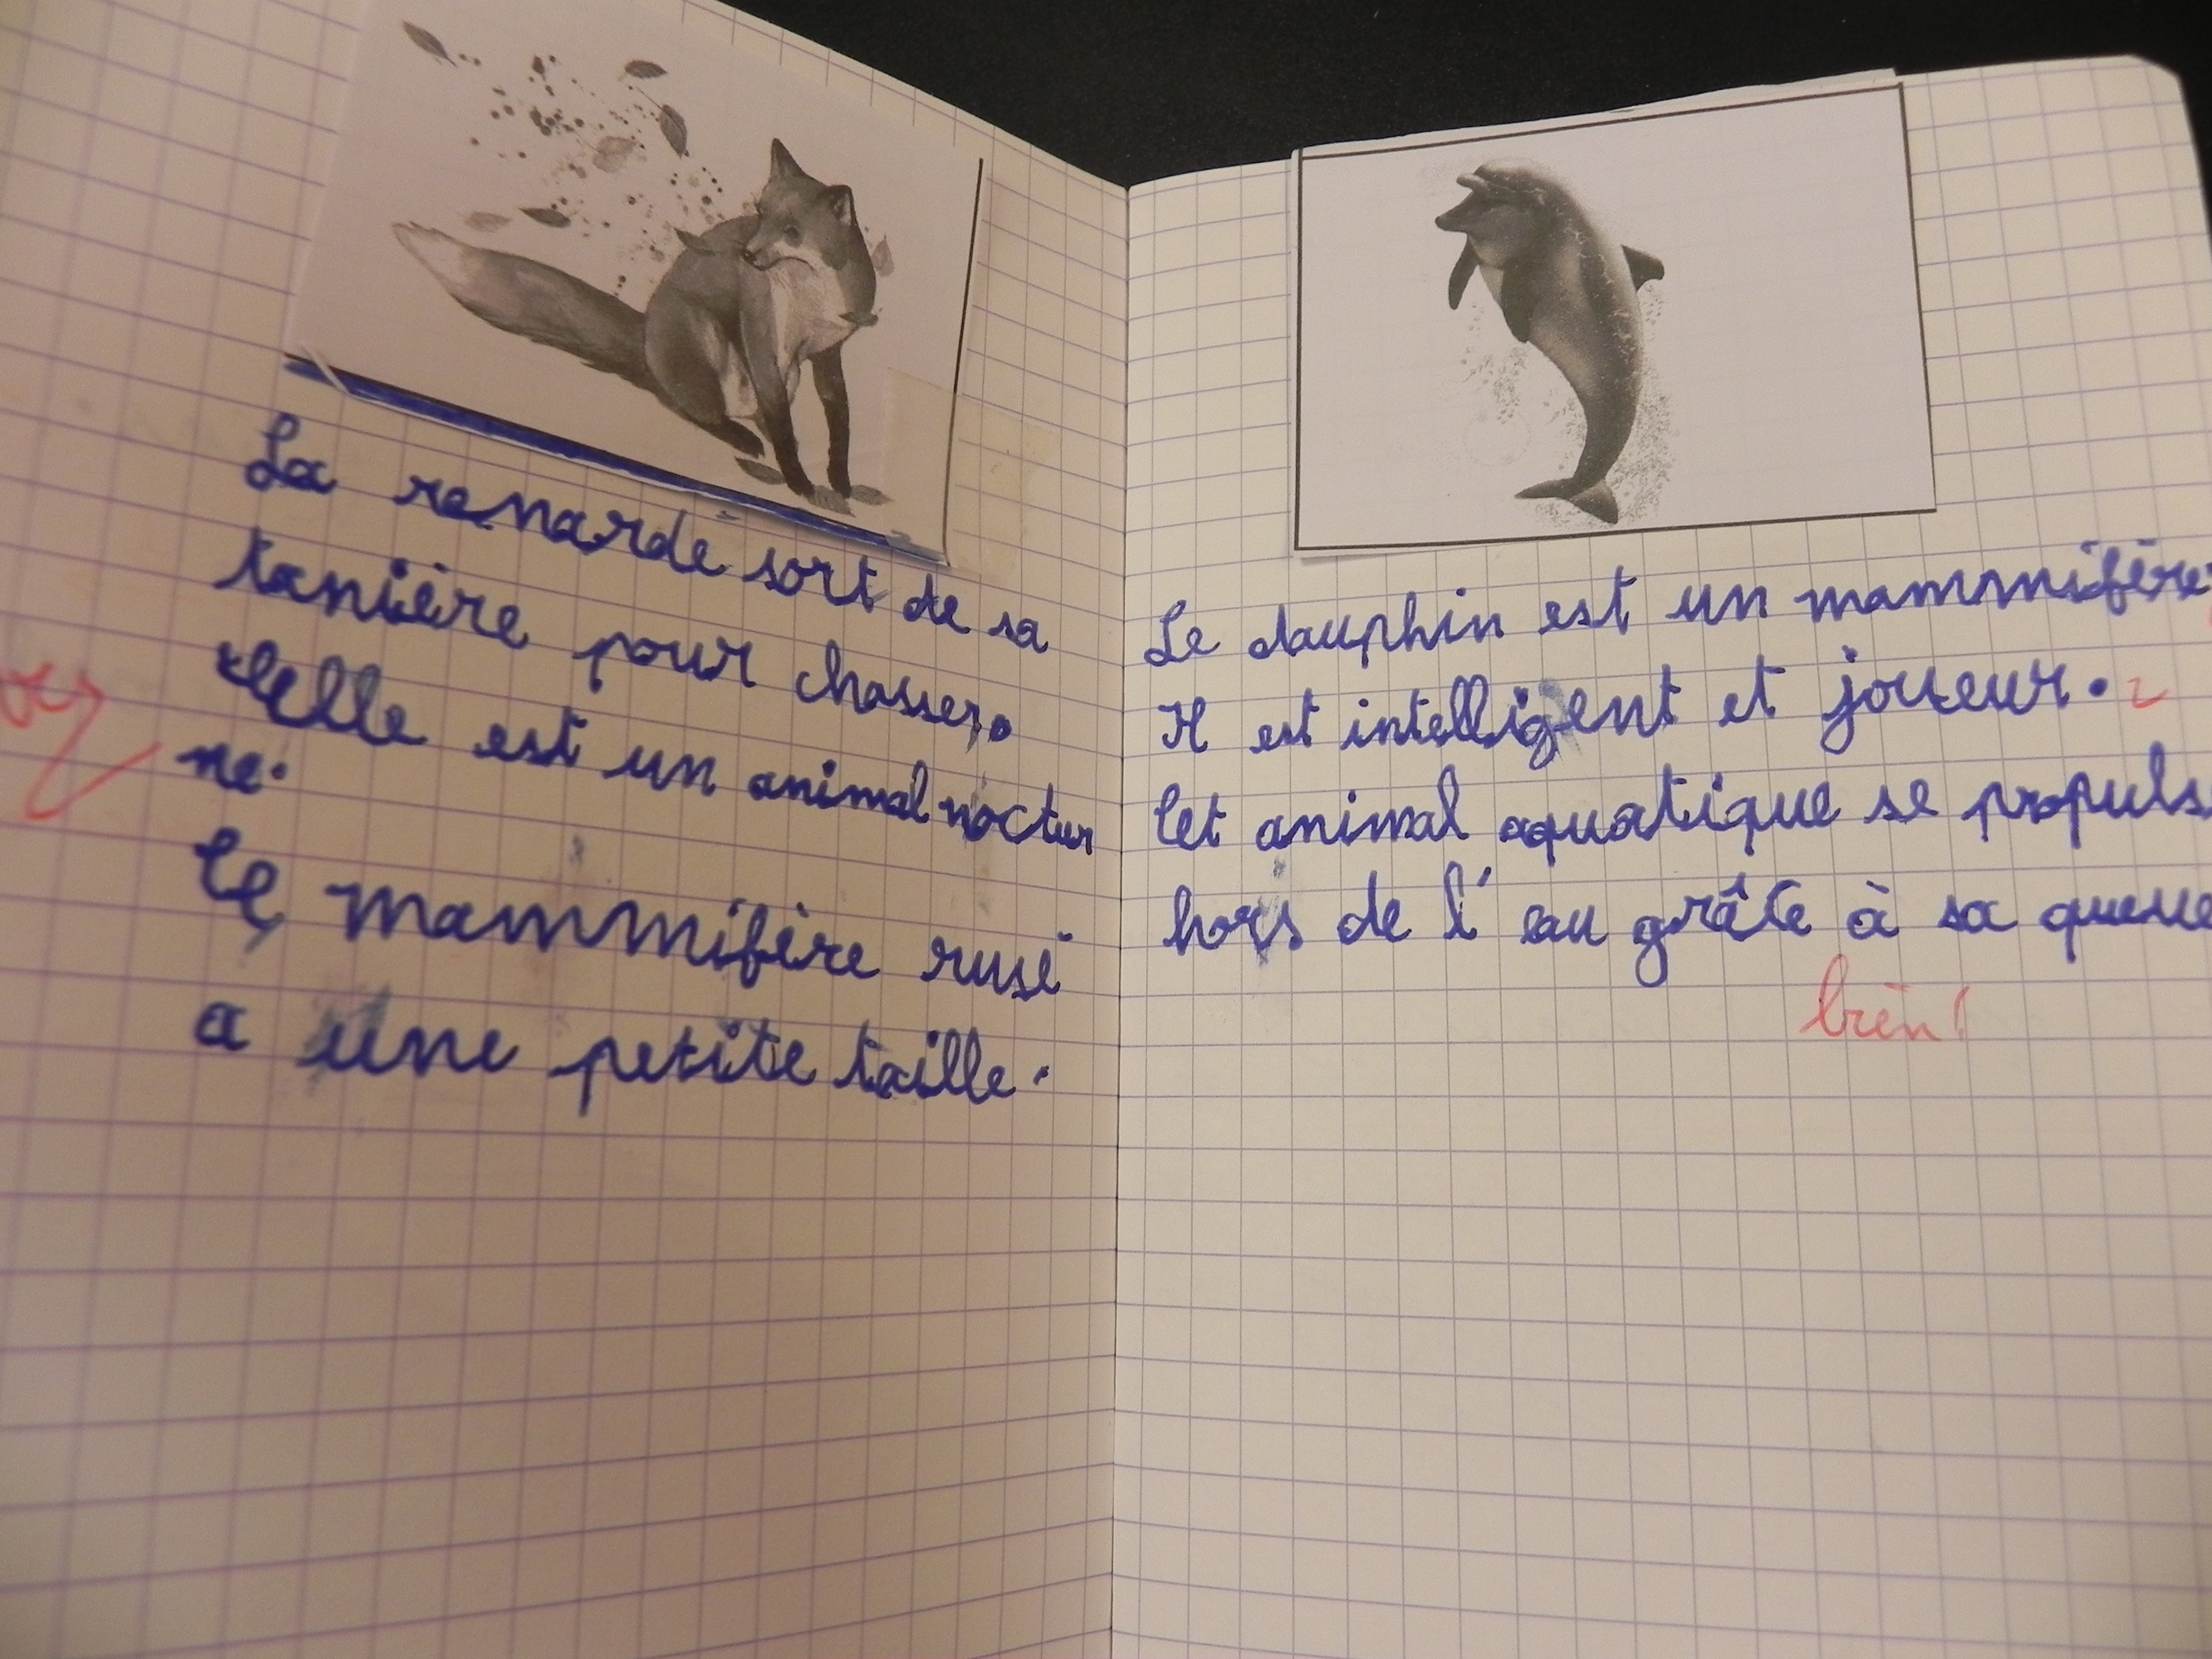 La renarde sort de sa
tanière pour chasser.
Elle est un animal noctur
ne.
Ce mammifère rusé
a une petite taille.
Le dauphin est un mammifère
Il est intelligent et joueur.
Cet animal aquatique se propulse
hors de l'eau grâce à sa queue
bien!